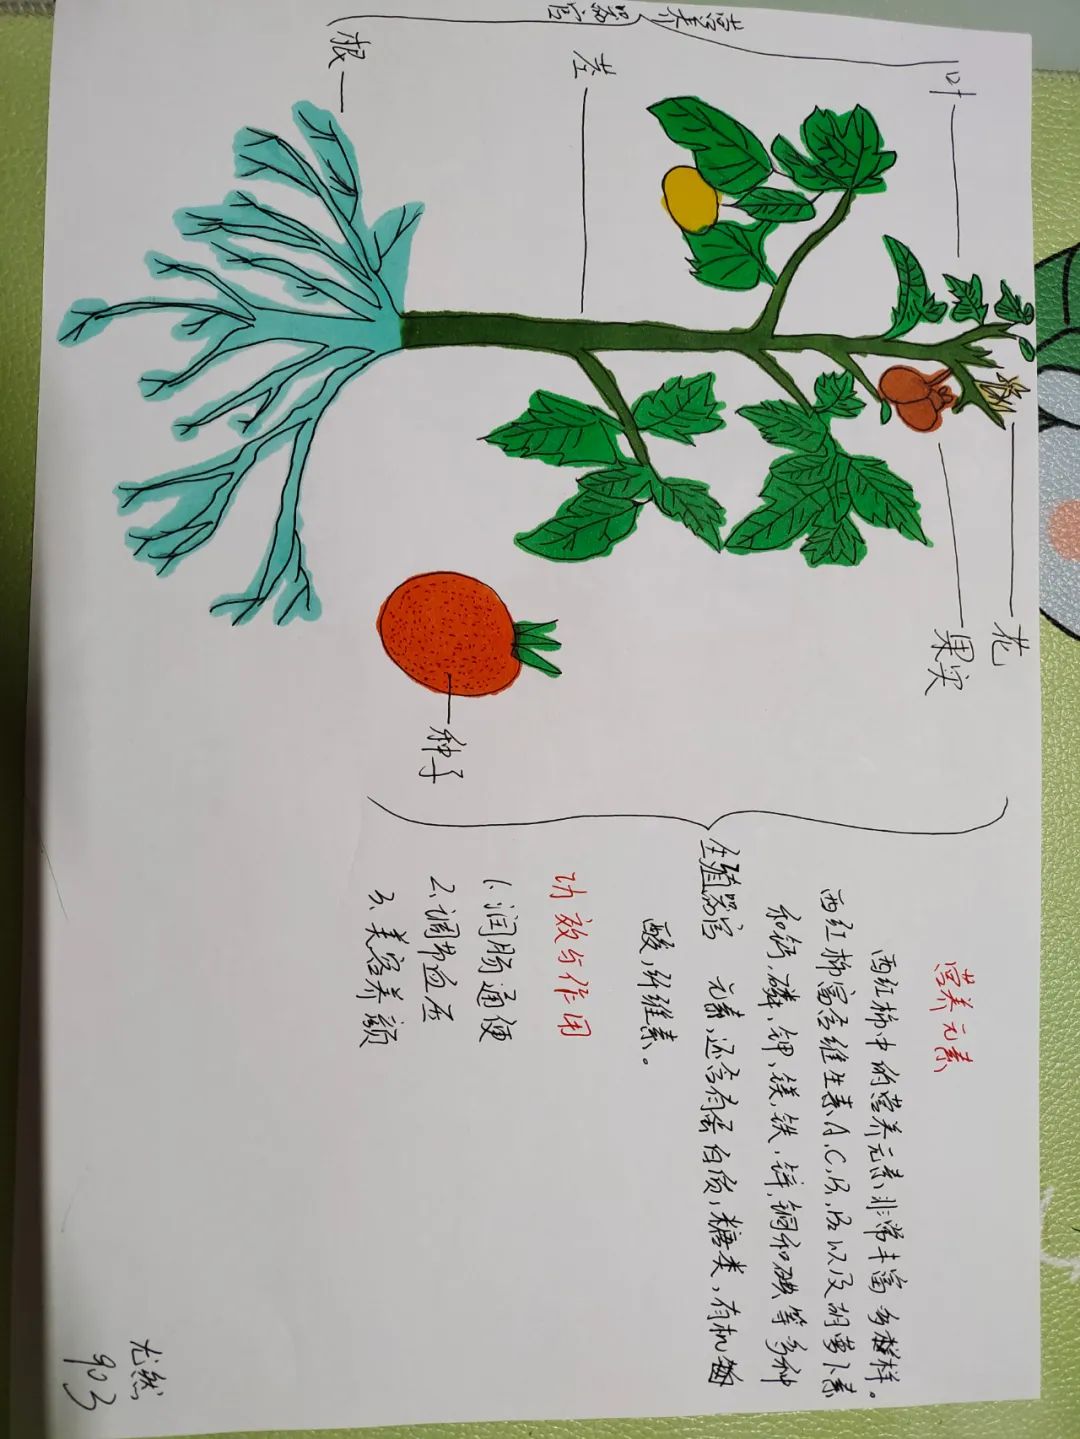 营养器官
叶
茎
根
花
果实
种子
生殖器官
营养元素
西红柿中的营养元素非常丰富多样。
西红柿富含维生素A,C,B₁,B₂以及胡萝卜素
和钙,磷,钾,镁,铁,锌,铜和碘等多种
元素,还含有蛋白质,糖类,有机
酸,纤维素。
功效与作用
1.润肠通便
2.调节血压
3.美容养颜
尤然
903